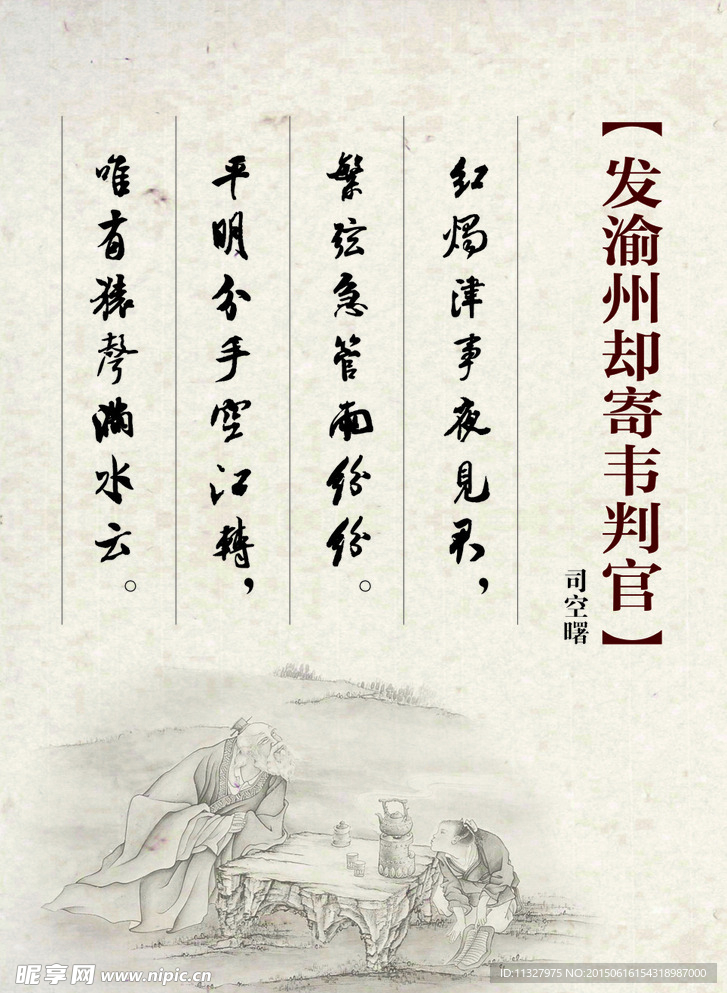 【发渝州却寄韦判官】
司空曙
红烛津事夜見君，
繁弦急管雨纷纷。
平明分手空江轉，
唯有猿聲满水云。
昵享网 www.nipic.cn
ID:11327975 NO:20150616154318987000